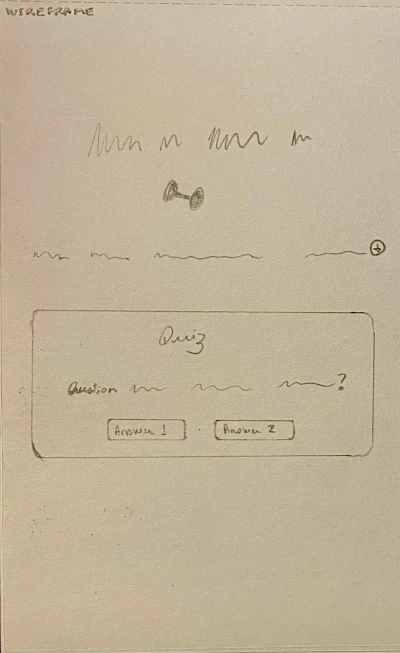 WIREFRAME
Quiz
Question ?
Answer 1 Answer 2